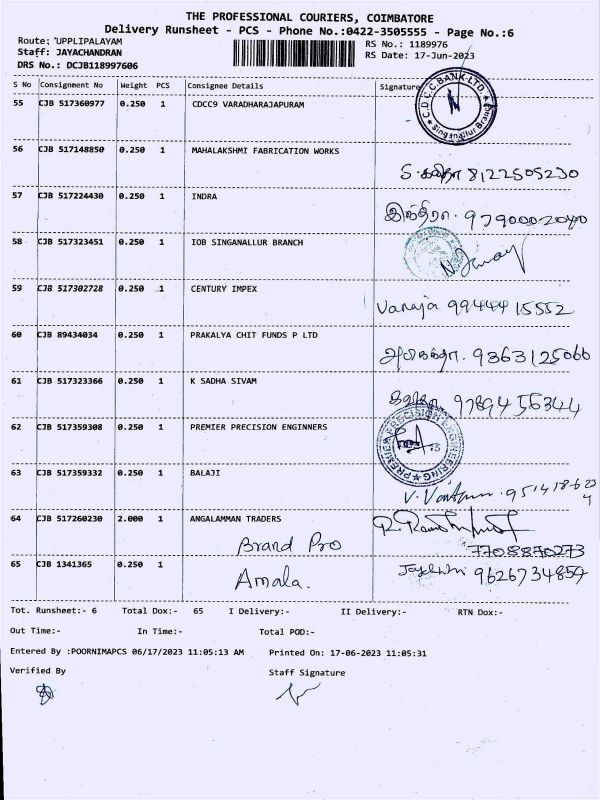 THE PROFESSIONAL COURIERS, COIMBATORE
Delivery Runsheet - PCS - Phone No.:0422-3505555 - Page No.:6
Route: UPPLIPALAYAM
RS No.: 1189976
Staff: JAYACHANDRAN
RS Date: 17-Jun-2023
DRS No.: DCJB118997606
S No Consignment No Weight PCS Consignee Details Signature
55 CJB 517360977 0.250 1 CDCC9 VARADHARAJAPURAM
C.D.C.C.BANK LTD. Singanallur Branch
56 CJB 517148850 0.250 1 MAHALAKSHMI FABRICATION WORKS
8122505230
57 CJB 517224430 0.250 1 INDRA
இந்திரா. 9790002040
58 CJB 517323451 0.250 1 IOB SINGANALLUR BRANCH
59 CJB 517302728 0.250 1 CENTURY IMPEX
Vanaja 99444 15552
60 CJB 89434034 0.250 1 PRAKALYA CHIT FUNDS P LTD
9363125066
61 CJB 517323366 0.250 1 K SADHA SIVAM
9789456344
62 CJB 517359308 0.250 1 PREMIER PRECISION ENGINNERS
PREMIER PRECISION ENGINEERING
63 CJB 517359332 0.250 1 BALAJI
64 CJB 517260230 2.000 1 ANGALAMMAN TRADERS
Brand Pro
7708870273
65 CJB 1341365 0.250 1
Amala.
9626734854
Tot. Runsheet:- 6 Total Dox:- 65 I Delivery:- II Delivery:- RTN Dox:-
Out Time:- In Time:- Total POD:-
Entered By :POORNIMAPCS 06/17/2023 11:05:13 AM Printed On: 17-06-2023 11:05:31
Verified By Staff Signature